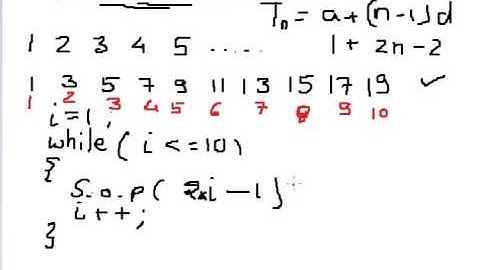 Tn = a+(n-1)d
1 2 3 4 5 ..... 1 + 2n-2
1 3 5 7 9 11 13 15 17 19 ✓
1 2 3 4 5 6 7 8 9 10
i=1;
while( i <= 10)
{
S.o.p( 2*i-1)
i++;
}